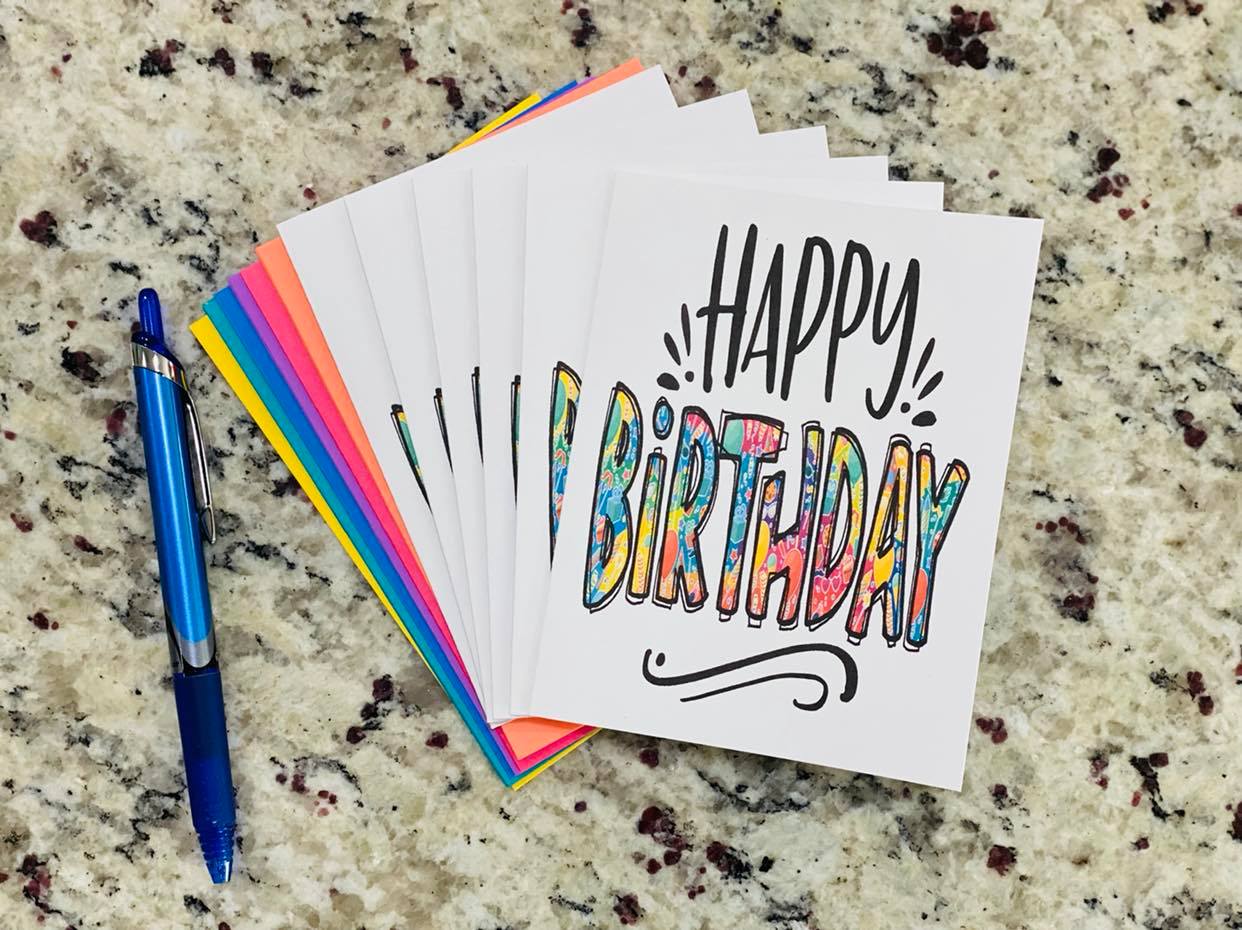 HAPPY
BiRTHDAY